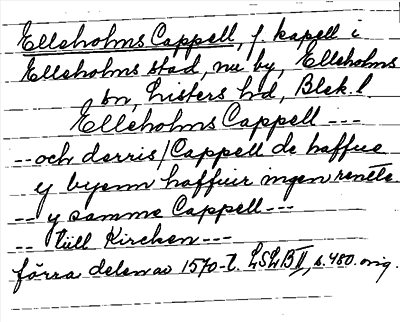 Elleholms Cappell, f. kapell i
Elleholms stad, nu by, Elleholms
sn, Listers hd, Blek. l.
Elleholms Cappell ---
-- och derris / Cappell de haffue
ey byenn haffuer ingen rentte
-- y samme Cappell ---
-- till Kircken ---
förra delen av 1570-t. LSLB II, s. 480. orig.